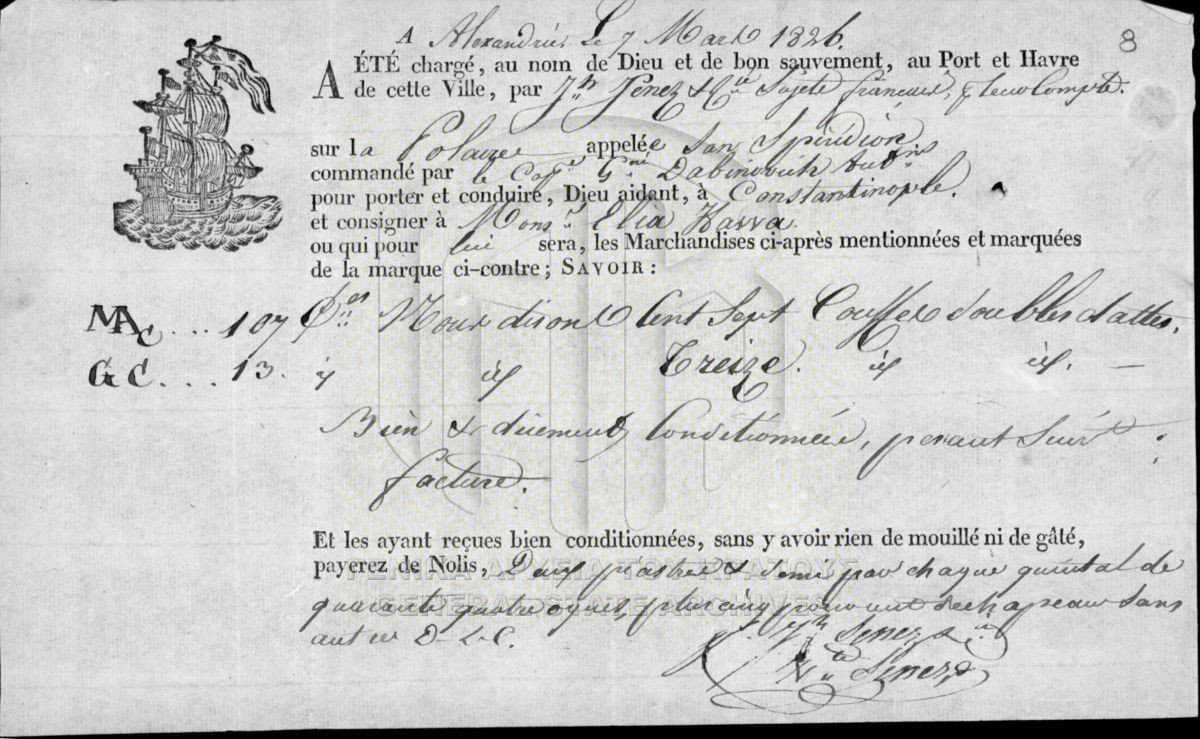 8
A Alexandrie Le 7 Mars 1826.
A ÉTÉ chargé, au nom de Dieu et de bon sauvement, au Port et Havre
de cette Ville, par Jh Senez & Cie Sujets français, p leur Compte.
sur la Polacre appelée San Spiridion
commandé par le Cape Gme Dabinovich Autns
pour porter et conduire, Dieu aidant, à Constantinople.
et consigner à Monsr Elia Kavva.
ou qui pour lui sera, les Marchandises ci-après mentionnées et marquées
de la marque ci-contre; SAVOIR:
MAC ... 107 Nous disons Cent Sept Couffes doubles dattes.
GC.... 13. Treize.
Bien & duement Conditionnées, pesant Suivt
facture.
Et les ayant reçues bien conditionnées, sans y avoir rien de mouillé ni de gâté,
payerez de Nolis, Deux piastres & demi par chaque quintal de
ΓΕΝΙΚΑ ΑΡΧΕΙΑ ΤΟΥ ΚΡΑΤΟΥΣ
quarante quatre oques, plus cinq pour cent de chapeau sans
GENERAL STATE ARCHIVES
autres D-L-C.
p. Jh Senez & Cie
Senez